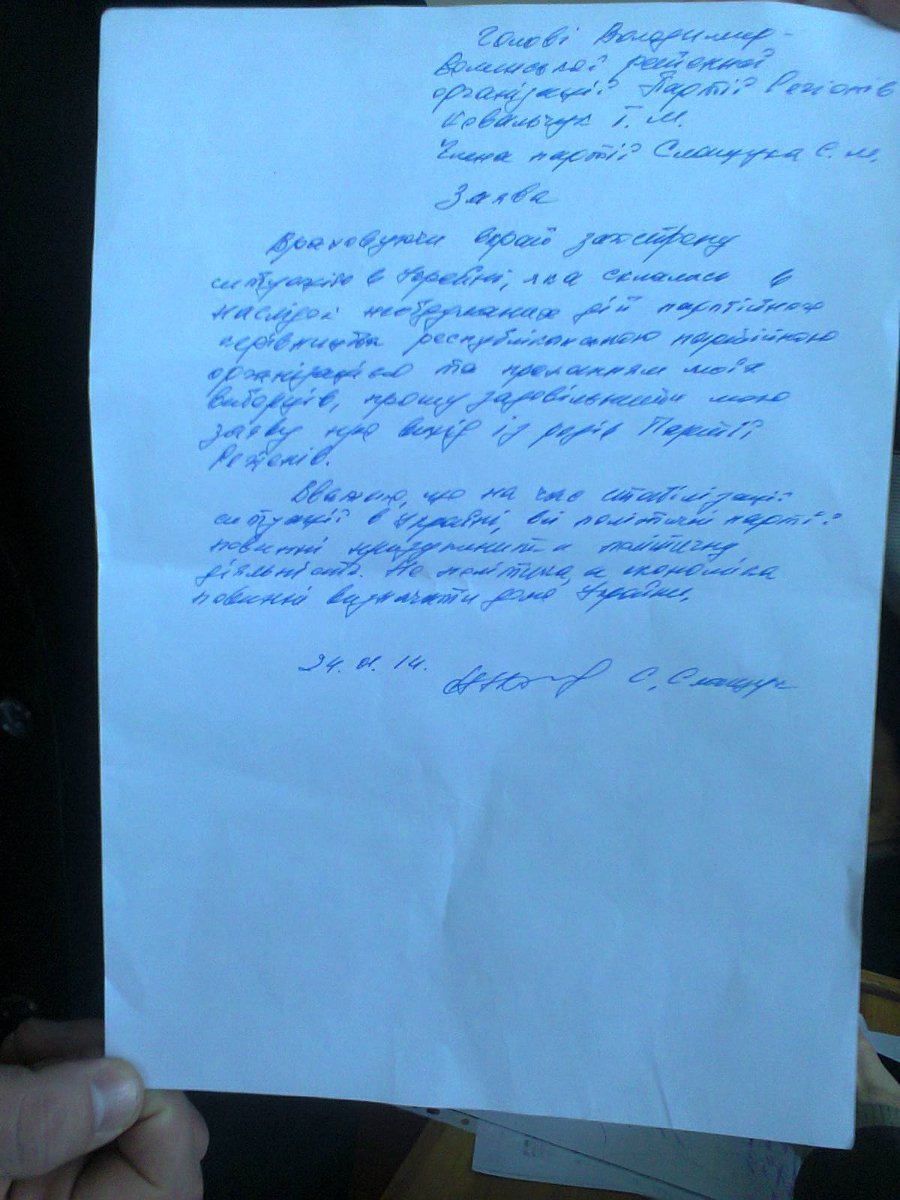 Голові Володимир-
Волинської районної
організації Партії Регіонів
Ковальчук Т. М.
Члена партії Слащука С. М.
Заява
Враховуючи вкрай загострену
ситуацію в Україні, яка склалась в
наслідок необдуманих дій партійного
керівництва республіканською партійною
організацією та проханням моїх
виборців, прошу задовільнити мою
заяву про вихід із рядів Партії
Регіонів.
Вважаю, що на час стабілізації
ситуації в Україні, всі політичні партії
повинні призупинити політичну
діяльність. Не політика, а економіка
повинні визначати долю України.
24. 01. 14. С. Слащук